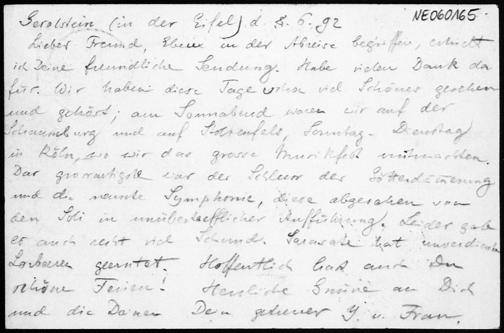 NE060165.
Gerolstein (in der Eifel) d. 8. 6. 92
Lieber Freund, Eben in der Abreise begriffen, erhielt
ich Deine freundliche Sendung. Habe vielen Dank da
für. Wir haben diese Tage schon viel Schönes gesehen
und gehört; am Sonnabend waren wir auf der
Schaumburg und auf Stolzenfels, Sonntag - Dienstag
in Köln, wo wir das grosse Musikfest mitmachten.
Das grossartigste war der Schluss der Götterdämmerung
und die neunte Symphonie, diese abgesehen von
den Soli in unübertrefflicher Aufführung. Leider gab
es auch recht viel Schund. Sarasate hat unverdiente
Lorbeeren geerntet. Hoffentlich hast auch Du
schöne Ferien! Herzliche Grüsse an Dich
und die Deinen Dein getreuer